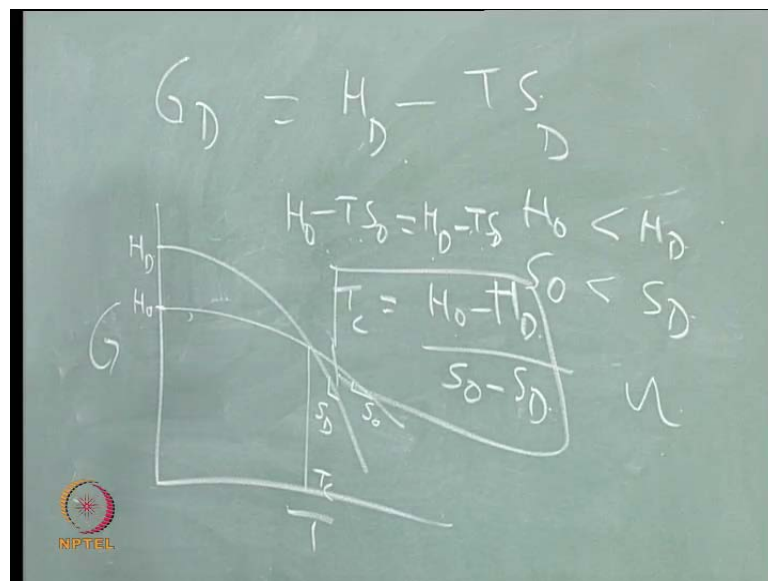 G_D = H_D - T S_D
H_0 - T S_0 = H_D - T S_D H_0 < H_D
S_0 < S_D
T_c = H_0 - H_D
S_0 - S_D
H_D
H_0
G
S_D S_0
T_c
T
NPTEL